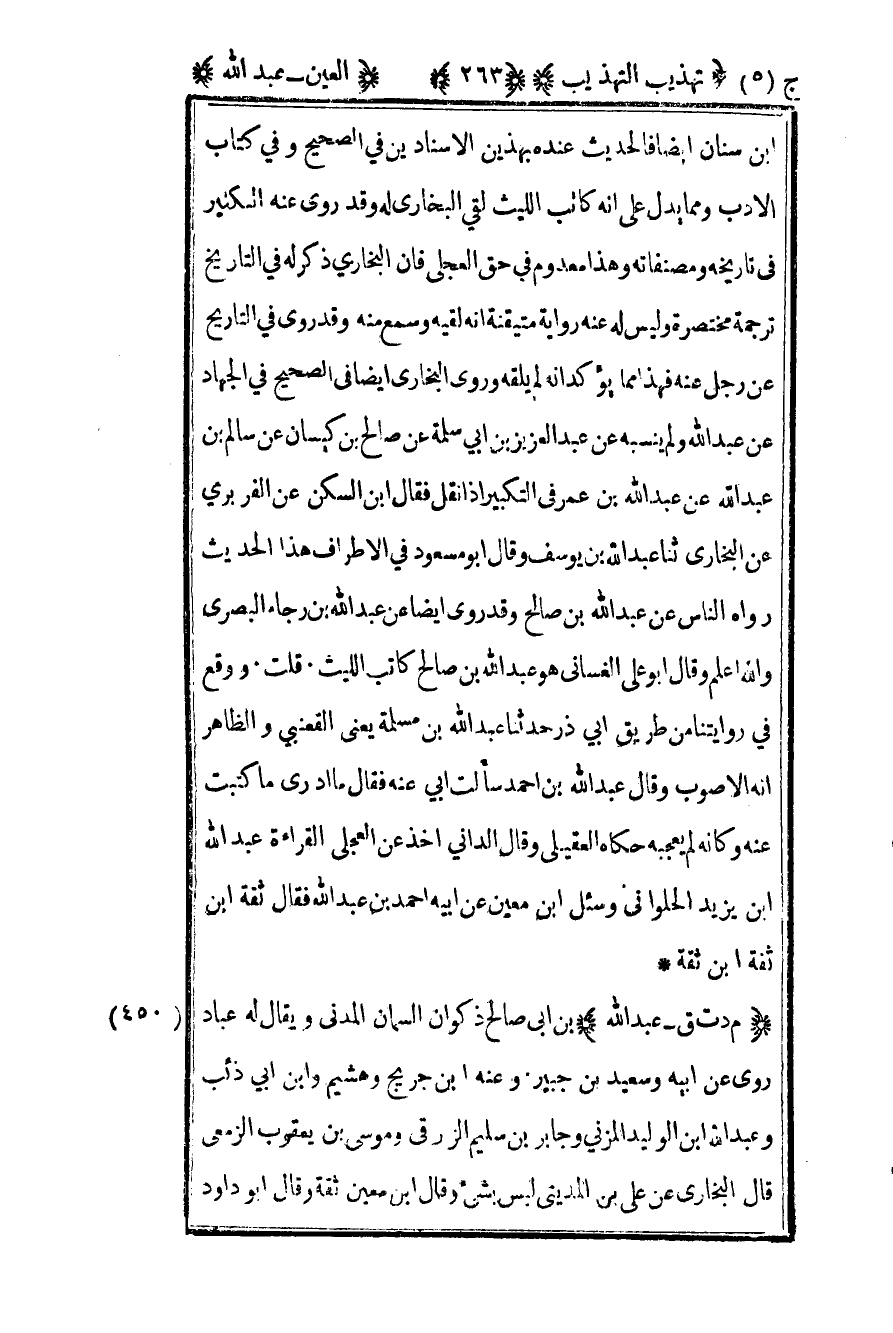 ج (٥) ﴿ تهذيب التهذيب ﴾ ﴿ ٢٦٣ ﴾ ﴿ العين ـ عبد الله ﴾
ابن سنان ايضا فالحديث عنده بهذين الاسنادين في الصحيح و في كتاب
الادب ومما يدل على انه كاتب الليث لقي البخارى له وقد روى عنه الكثير
فى تاريخه ومصنفاته وهذا معدوم في حق العجلى فان البخاري ذكر له في التاريخ
ترجمة مختصرة وليس له عنه رواية متيقنة انه لقيه وسمع منه وقد روى في التاريخ
عن رجل عنه فهذا مما يؤكد انه لم يلقه وروى البخارى ايضا فى الصحيح في الجهاد
عن عبد الله ولم ينسبه عن عبد العزيز بن ابي سلمة عن صالح بن كيسان عن سالم بن
عبد الله عن عبد الله بن عمر فى التكبير اذا نقل فقال ابن السكن عن الفربري
عن البخارى ثنا عبد الله بن يوسف وقال ابو مسعود في الاطراف هذا الحديث
رواه الناس عن عبد الله بن صالح وقد روى ايضا عن عبد الله بن رجاء البصرى
والله اعلم وقال ابو على الغسانى هو عبد الله بن صالح كاتب الليث ٠ قلت ٠ و وقع
في روايتنا من طريق ابي ذر حدثنا عبد الله بن مسلمة يعنى القعنبي و الظاهر
انه الاصوب وقال عبد الله بن احمد سألت ابي عنه فقال ما ادرى ما كتبت
عنه وكانه لم يعجبه حكاه العقيلى وقال الداني اخذ عن العجلى القراءة عبد الله
ابن يزيد الحلوانى وسئل ابن معين عن ابيه احمد بن عبد الله فقال ثقة ابن
ثقة ابن ثقة *
﴿ م د ت ق ـ عبد الله ﴾ بن ابى صالح ذكوان السمان المدنى و يقال له عباد (٤٥٠)
روى عن ابيه وسعيد بن جبير ٠ و عنه ابن جريج وهشيم وابن ابي ذئب
و عبد الله ابن الوليد المزني وجابر بن سليم الزرقى وموسى بن يعقوب الزمعى
قال البخارى عن على بن المدينى ليس بشئ وقال ابن معين ثقة وقال ابو داود